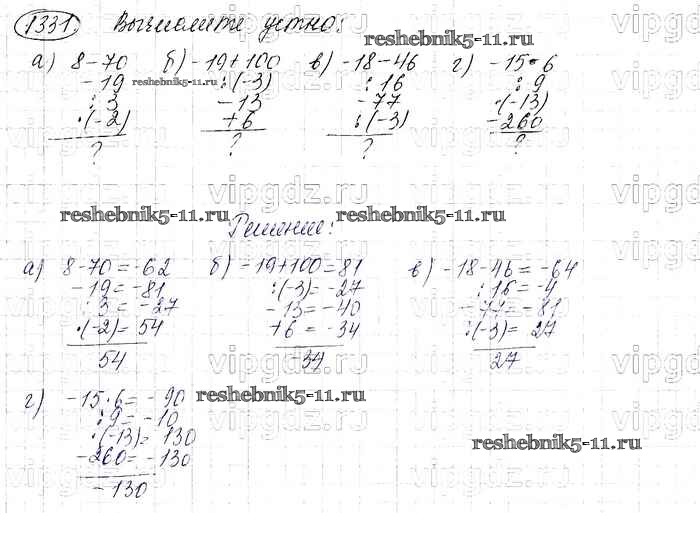 1331. Вычислите устно:
reshebnik5-11.ru
а) 8-70 б) -19+100 в) -18-46 г) -15·6
-19 reshebnik5-11.ru :(-3) :16 :9
:3 -13 -77 ·(-13)
·(-2) +6 :(-3) -260
? ? ? ?
vipgdz.ru vipgdz.ru vipgdz.ru
reshebnik5-11.ru reshebnik5-11.ru
Решение:
а) 8-70=-62 б) -19+100=81 в) -18-46=-64
-19=-81 :(-3)=-27 :16=-4
:3=-27 -13=-40 -77=-81
·(-2)=54 +6=-34 :(-3)=27
54 -34 27
г) -15·6=-90 reshebnik5-11.ru
:9=-10
·(-13)=130
-260=-130 reshebnik5-11.ru
-130